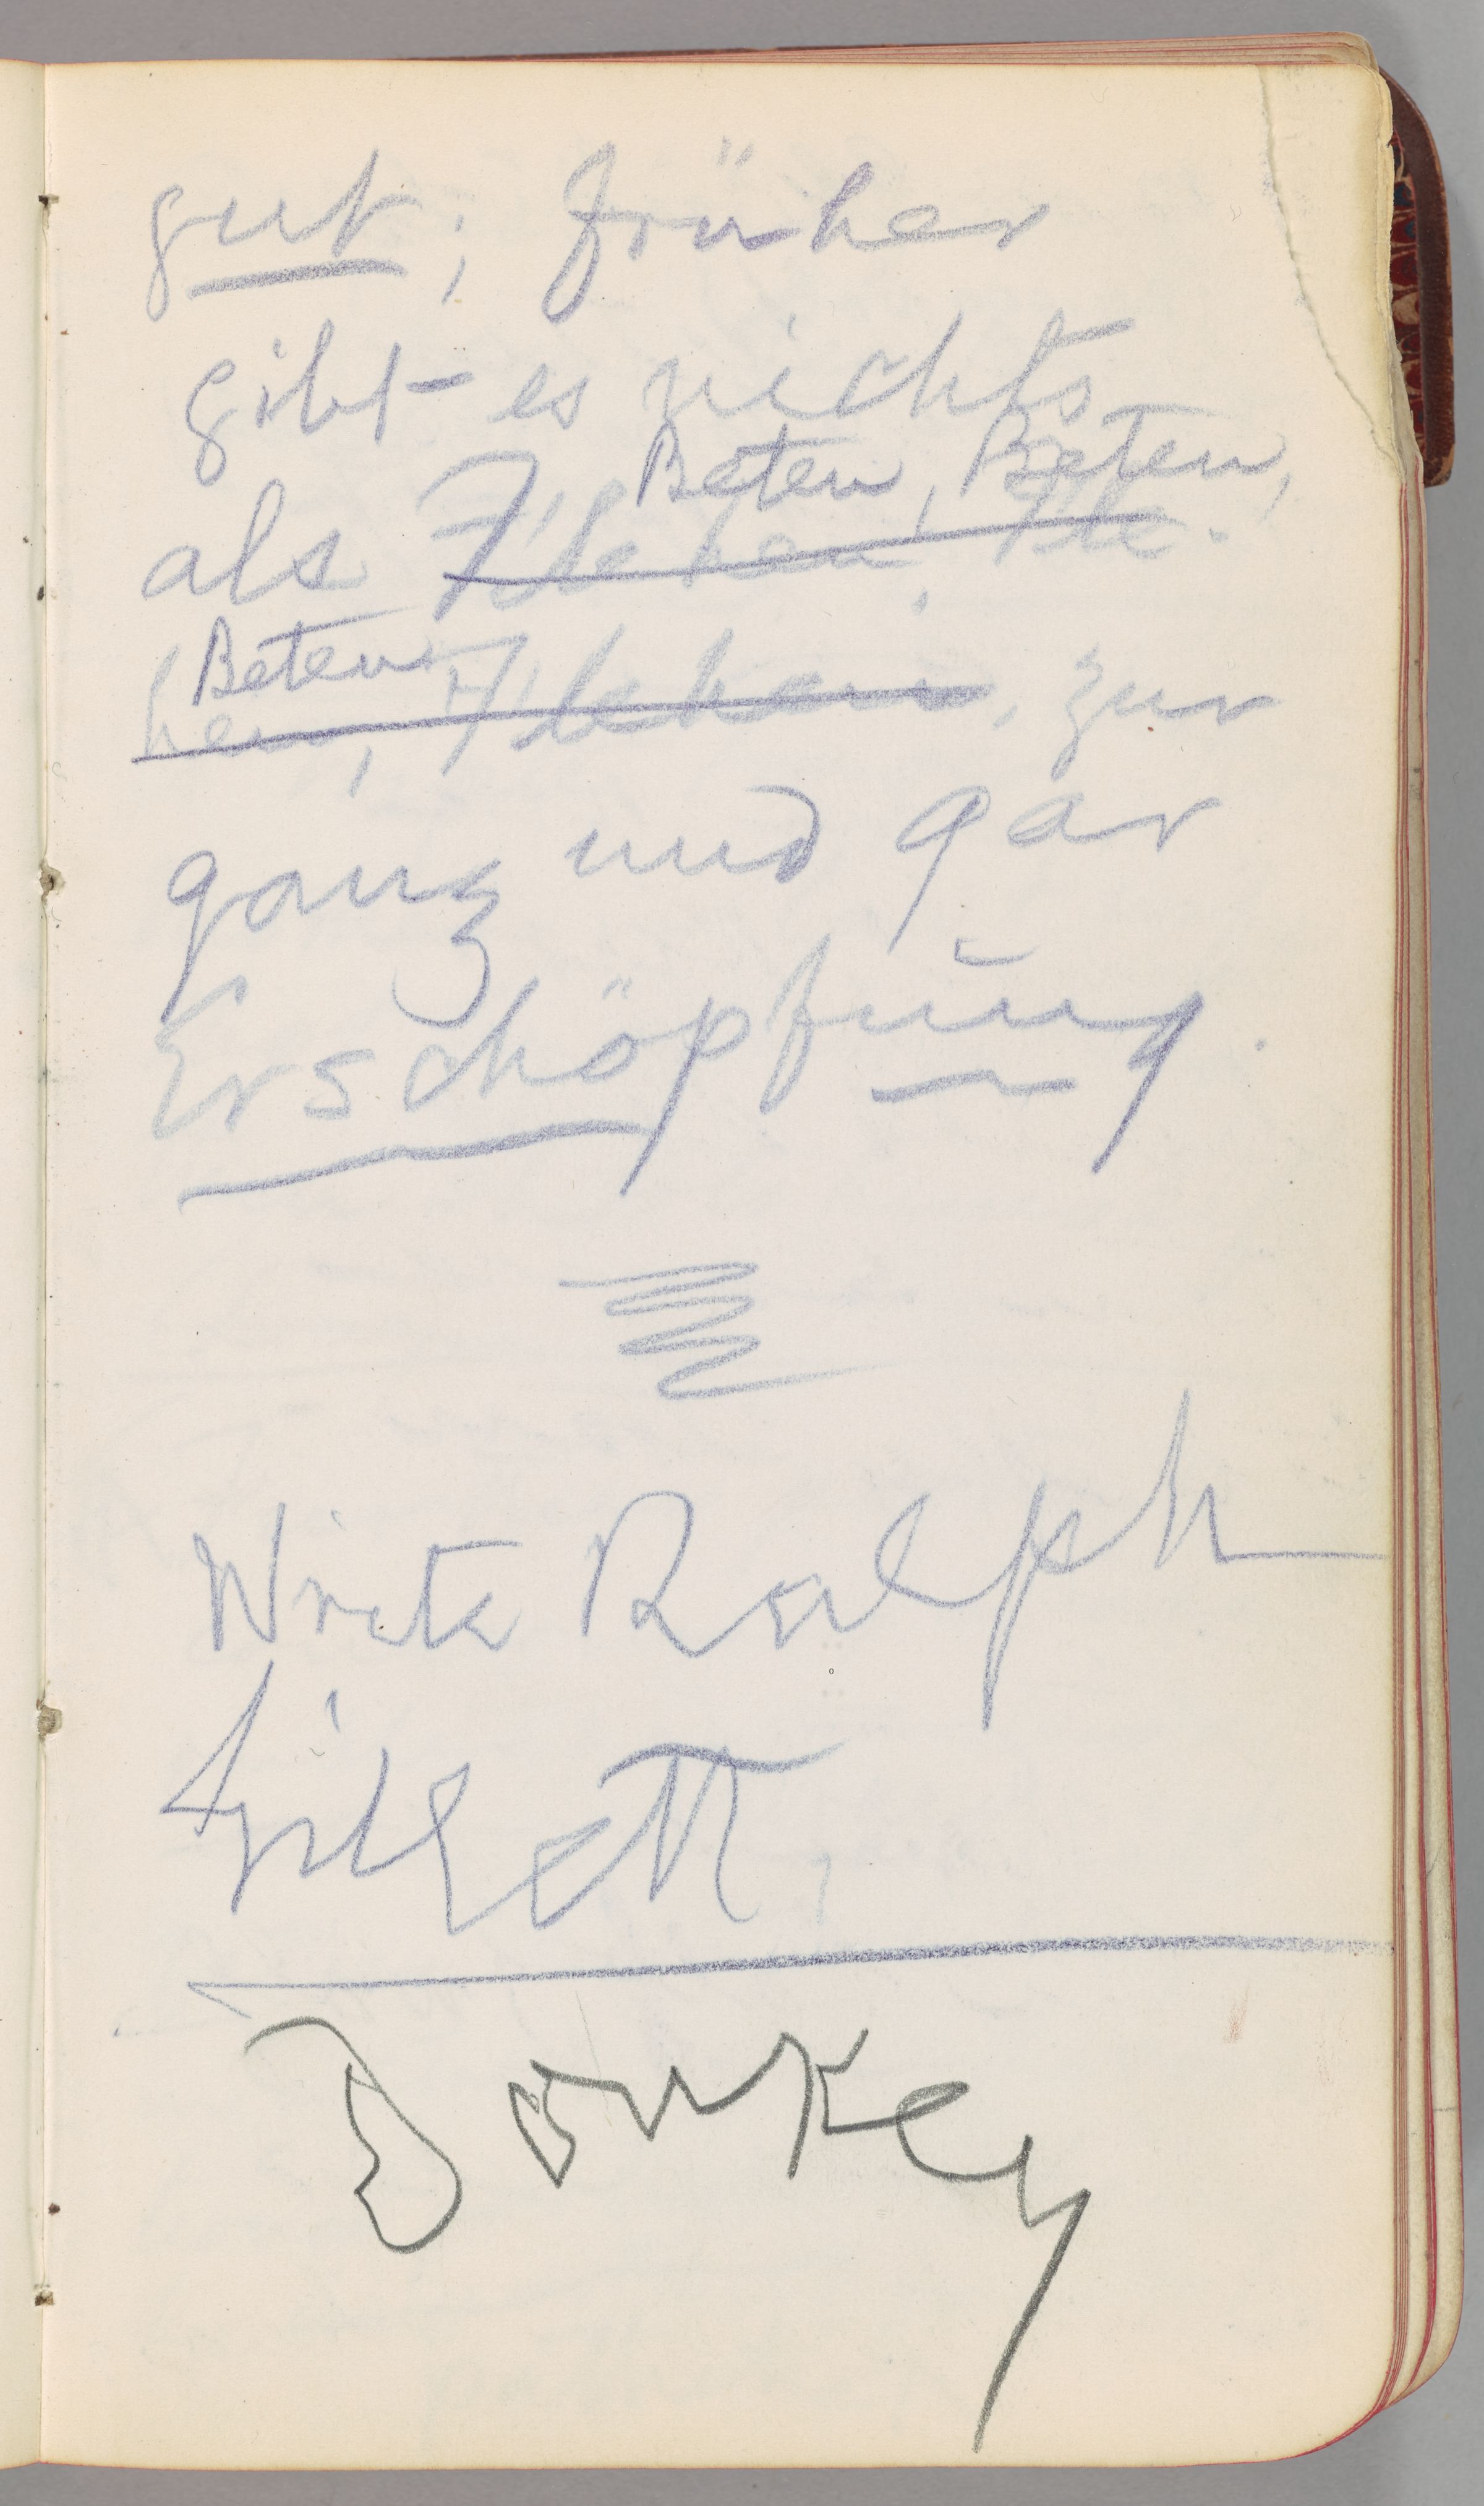 gut; früher
gibt es nichts
Beten, Beten,
als Flehen, Fle-
Beten
hen, Flehen, zur
ganz und gar
Erschöpfung.
Write Ralph
Donkey